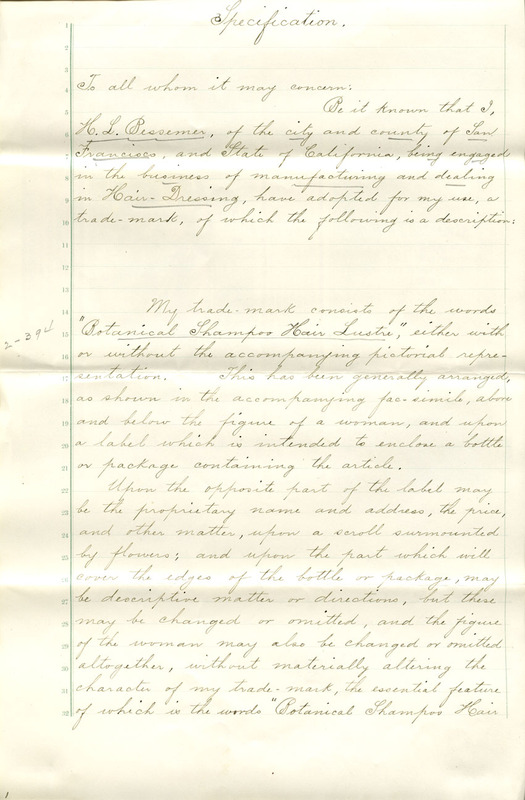 Specification.
To all whom it may concern:
Be it known that I,
H. L. Bessemer, of the city and county of San
Francisco, and State of California, being engaged
in the business of manufacturing and dealing
in Hair-Dressing, have adopted for my use, a
trade-mark, of which the following is a description:
My trade-mark consists of the words
"Botanical Shampoo Hair Lustre", either with
2-394
or without the accompanying pictorial repre-
sentation. This has been generally arranged,
as shown in the accompanying fac-simile, above
and below the figure of a woman, and upon
a label which is intended to enclose a bottle
or package containing the article.
Upon the opposite part of the label may
be the proprietary name and address, the price,
and other matter, upon a scroll surmounted
by flowers; and upon the part which will
cover the edges of the bottle or package, may
be descriptive matter or directions, but these
may be changed or omitted, and the figure
of the woman may also be changed or omitted
altogether, without materially altering the
character of my trade-mark, the essential feature
of which is the words "Botanical Shampoo Hair